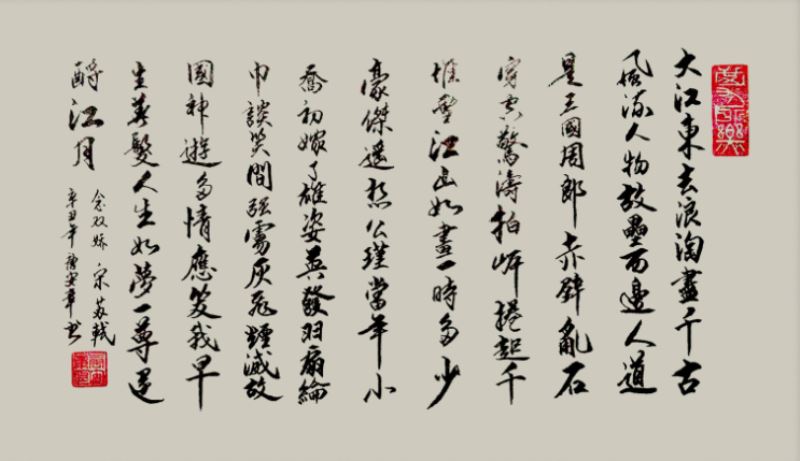 大江東去浪淘盡千古
風流人物故壘西邊人道
是三國周郎赤壁亂石
穿空驚濤拍岸捲起千
堆雪江山如畫一時多少
豪傑遙想公瑾當年小
喬初嫁了雄姿英發羽扇綸
巾談笑間强虜灰飛煙滅故
國神遊多情應笑我早
生華髮人生如夢一尊還
酹江月
念奴娇 宋 苏軾
辛丑年 书